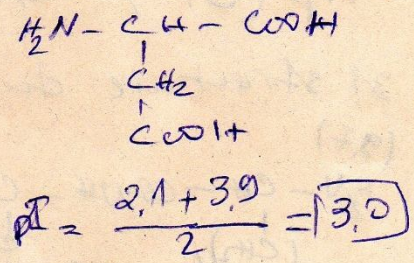 H2N - CH - COOH
CH2
COOH
pI = 2,1 + 3,9 / 2 = 3,0